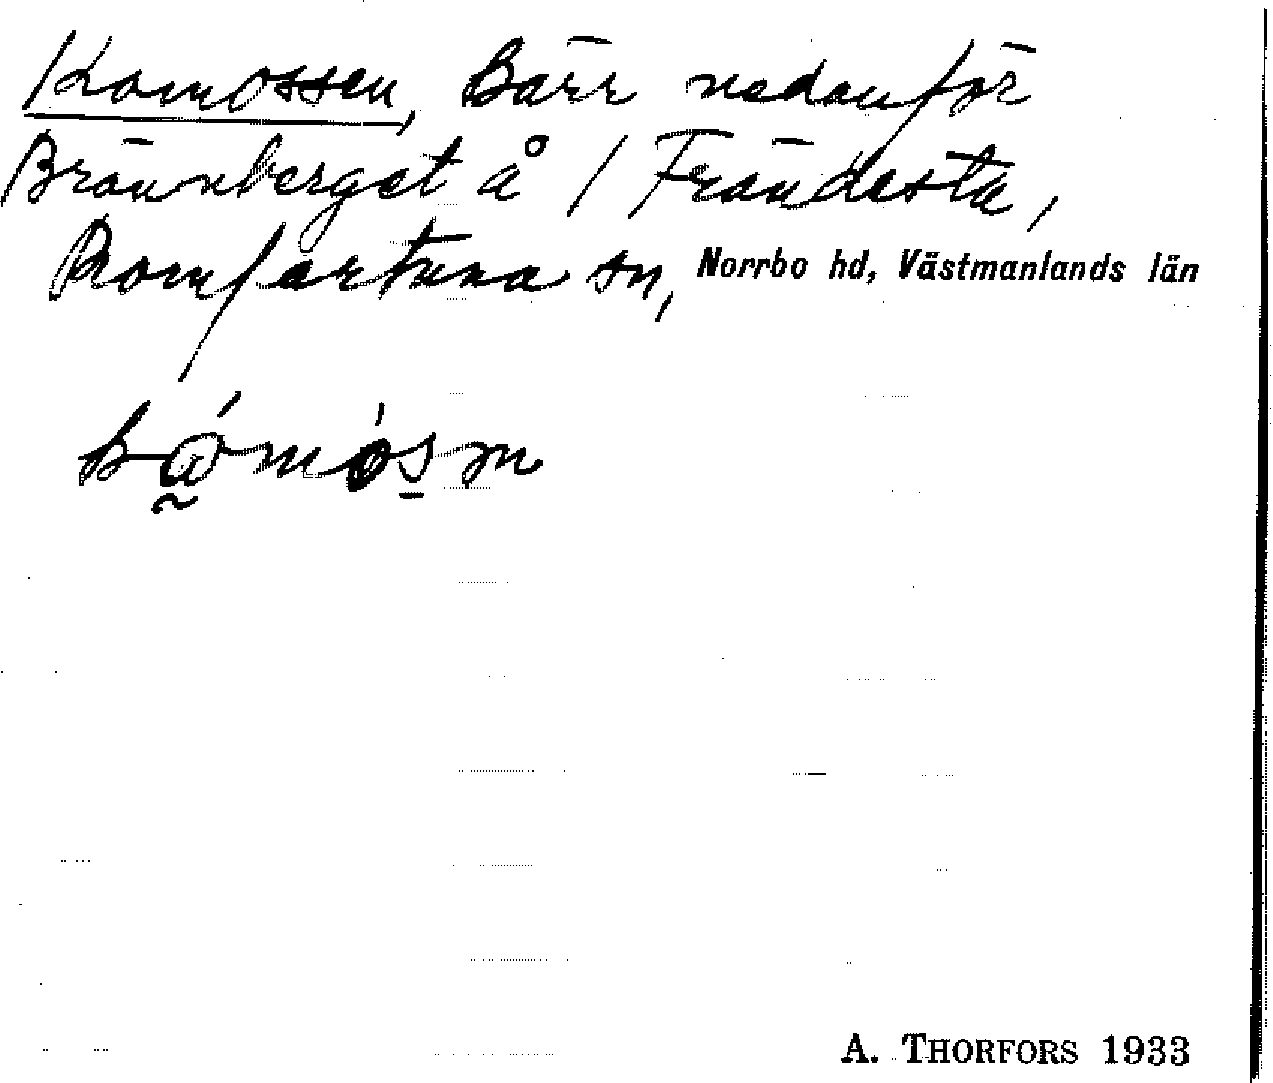 Komossen, Bärr nedanför
Brännberget å / Frändesta,
Romfartuna sn, Norrbo hd, Västmanlands län
A. THORFORS 1933